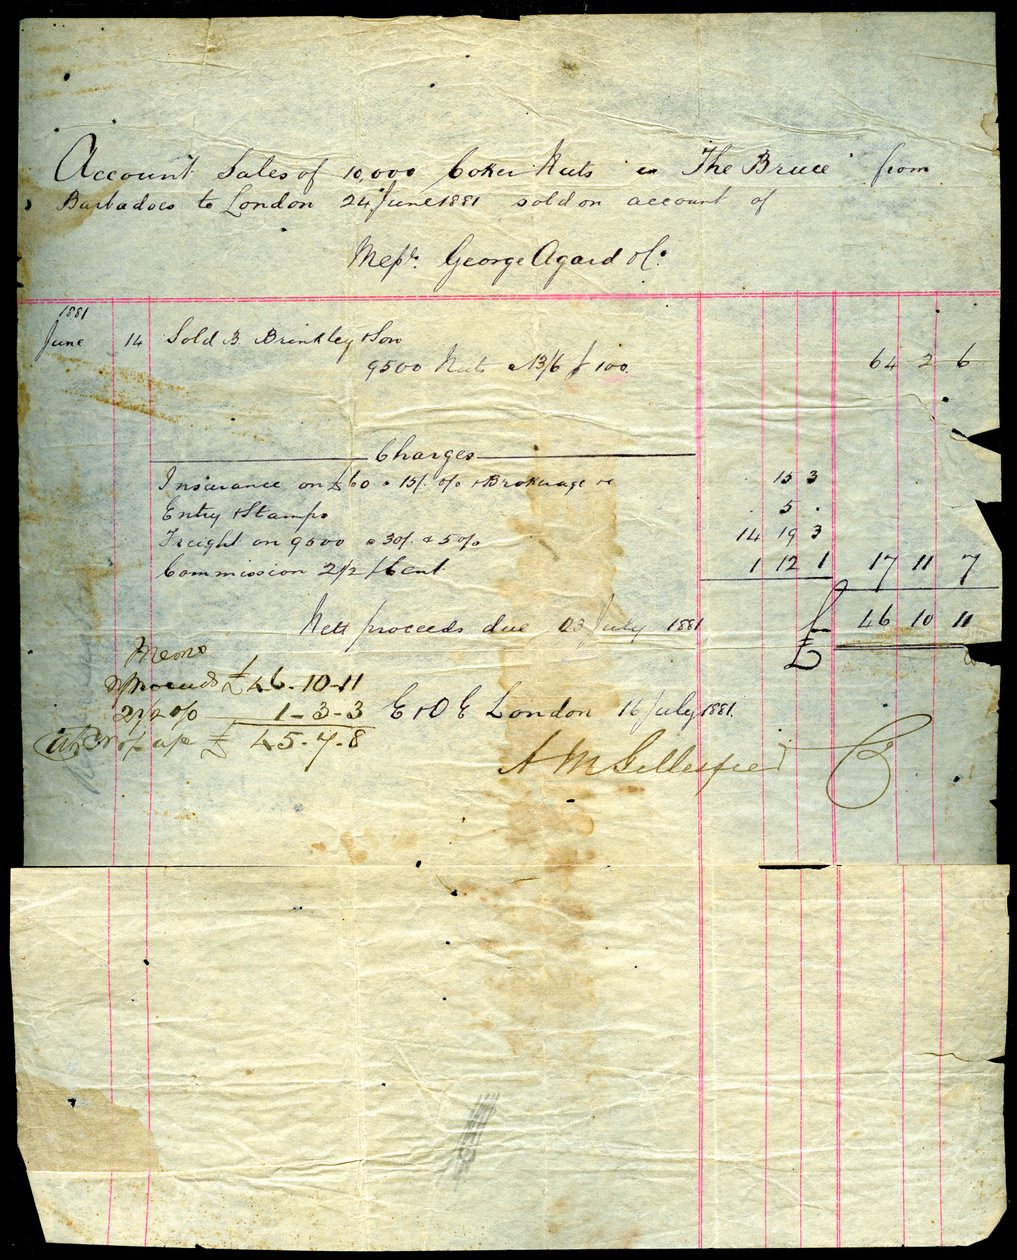 Account Sales of 10,000 Coker Nuts "The Bruce" from
Barbadoes to London 24 June 1881 sold on account of
Messrs. George Agard & Co.
1881
June 14 Sold B Brinkley & Son
9500 Nuts @ 13/6 p 100. 64 2 6
Charges
Insurance on £60 @ 15/. o/o & Brokerage 15 3
Entry & Stamps . 5 .
Freight on 9500 @ 30/. & 5 o/o 14 19 3
Commission 2 1/2 p Cent 1 12 1 17 11 7
Nett proceeds due 23 July 1881 £ 46 10 11
Memo
Proceeds £46-10-11
2 1/2 o/o 1-3-3
£ 45.7.8
E & O E London 16 July 1881.
A M Gillespie & Co